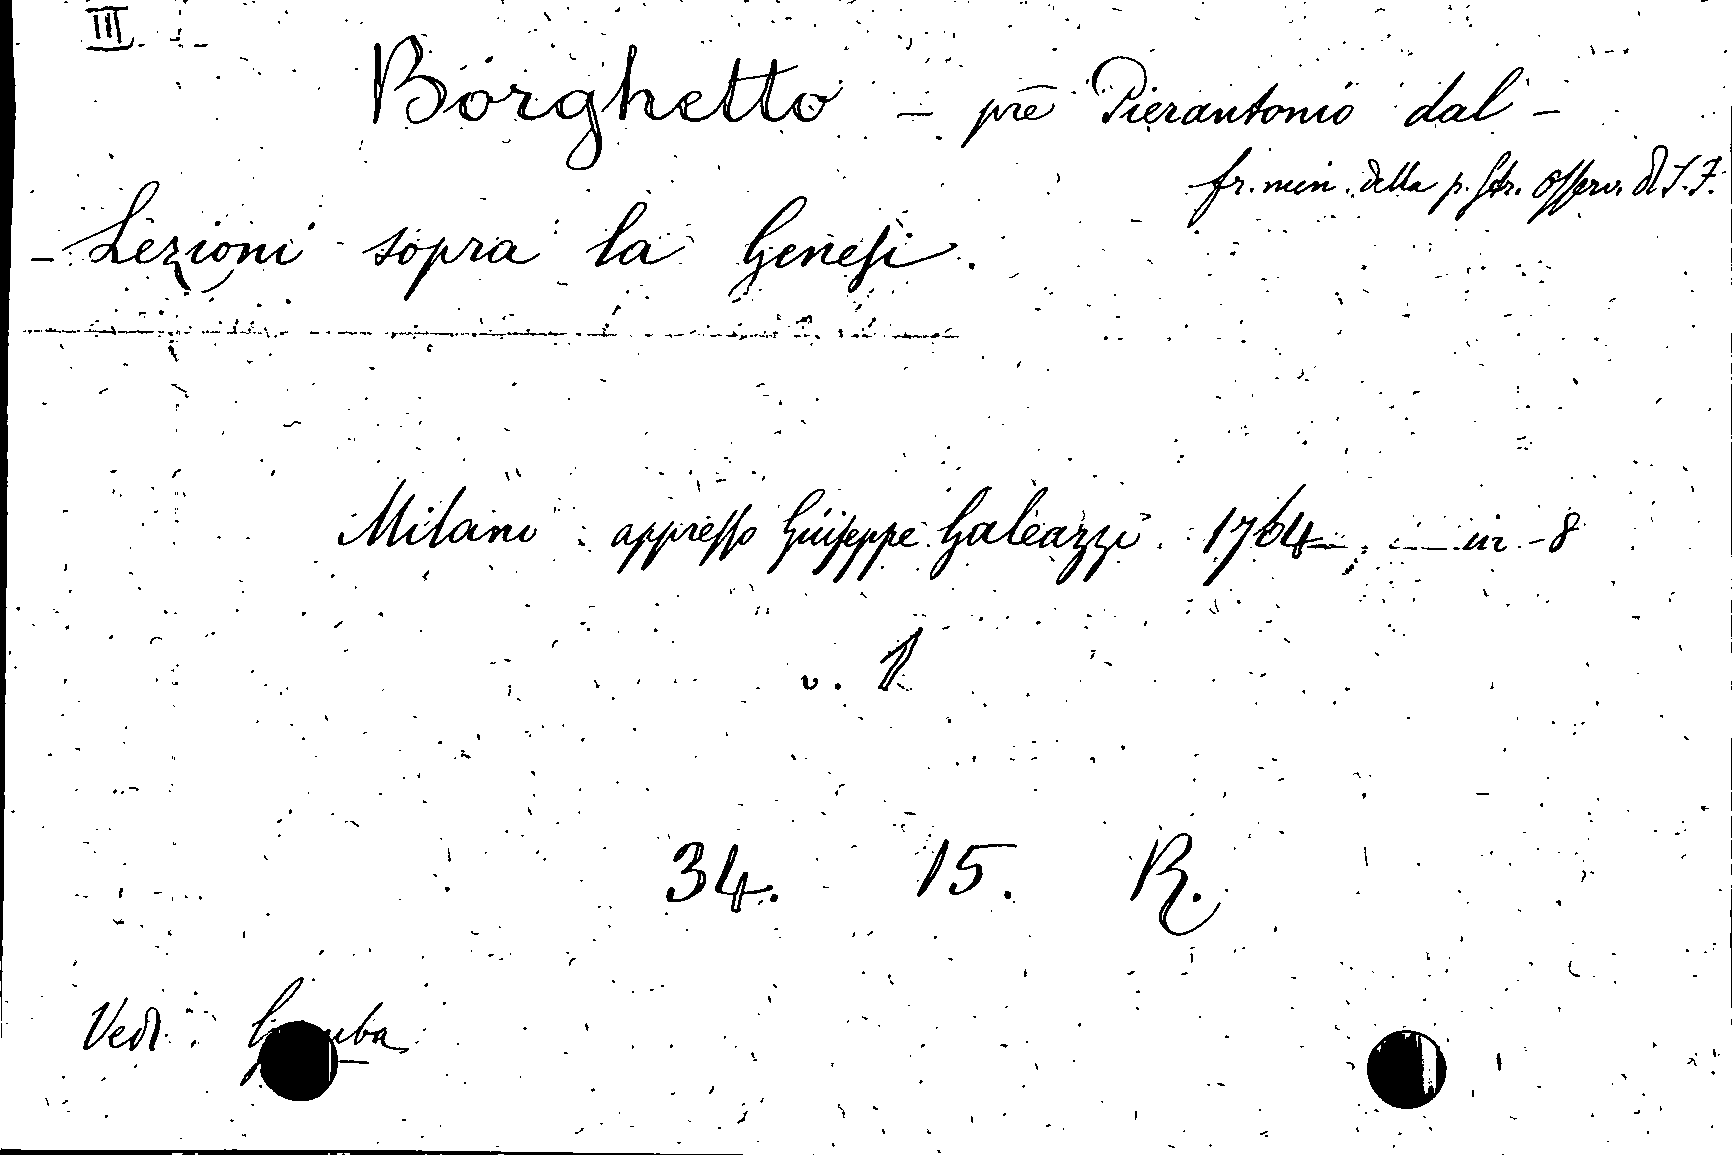 III
Borghetto - prē Pierantonio dal -
fr. min. della p. Str. Osserv. di S. F.
- Lezioni sopra la Genesi.
Milano appresso Giuseppe Galeazzi 1764 in - 8
v. 1
34. 15. R.
Vedi